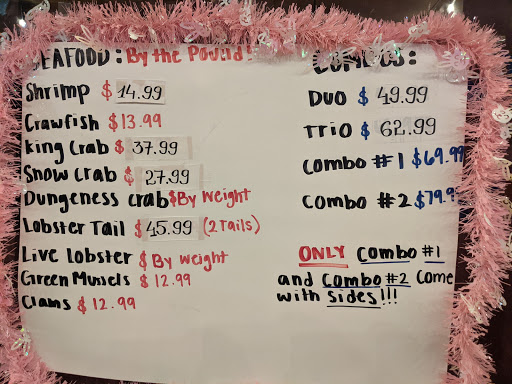 SEAFOOD: By the Pound!
Shrimp $ 14.99
Crawfish $13.99
King Crab $ 37.99
Snow crab $ 27.99
Dungeness crab $By Weight
Lobster Tail $ 45.99 (2 Tails)
Live Lobster $ By weight
Green Mussels $ 12.99
Clams $ 12.99
COMBOS:
Duo $ 49.99
Trio $ 62.99
Combo #1 $69.99
Combo #2 $79.99
ONLY Combo #1
and Combo #2 Come
with sides!!!